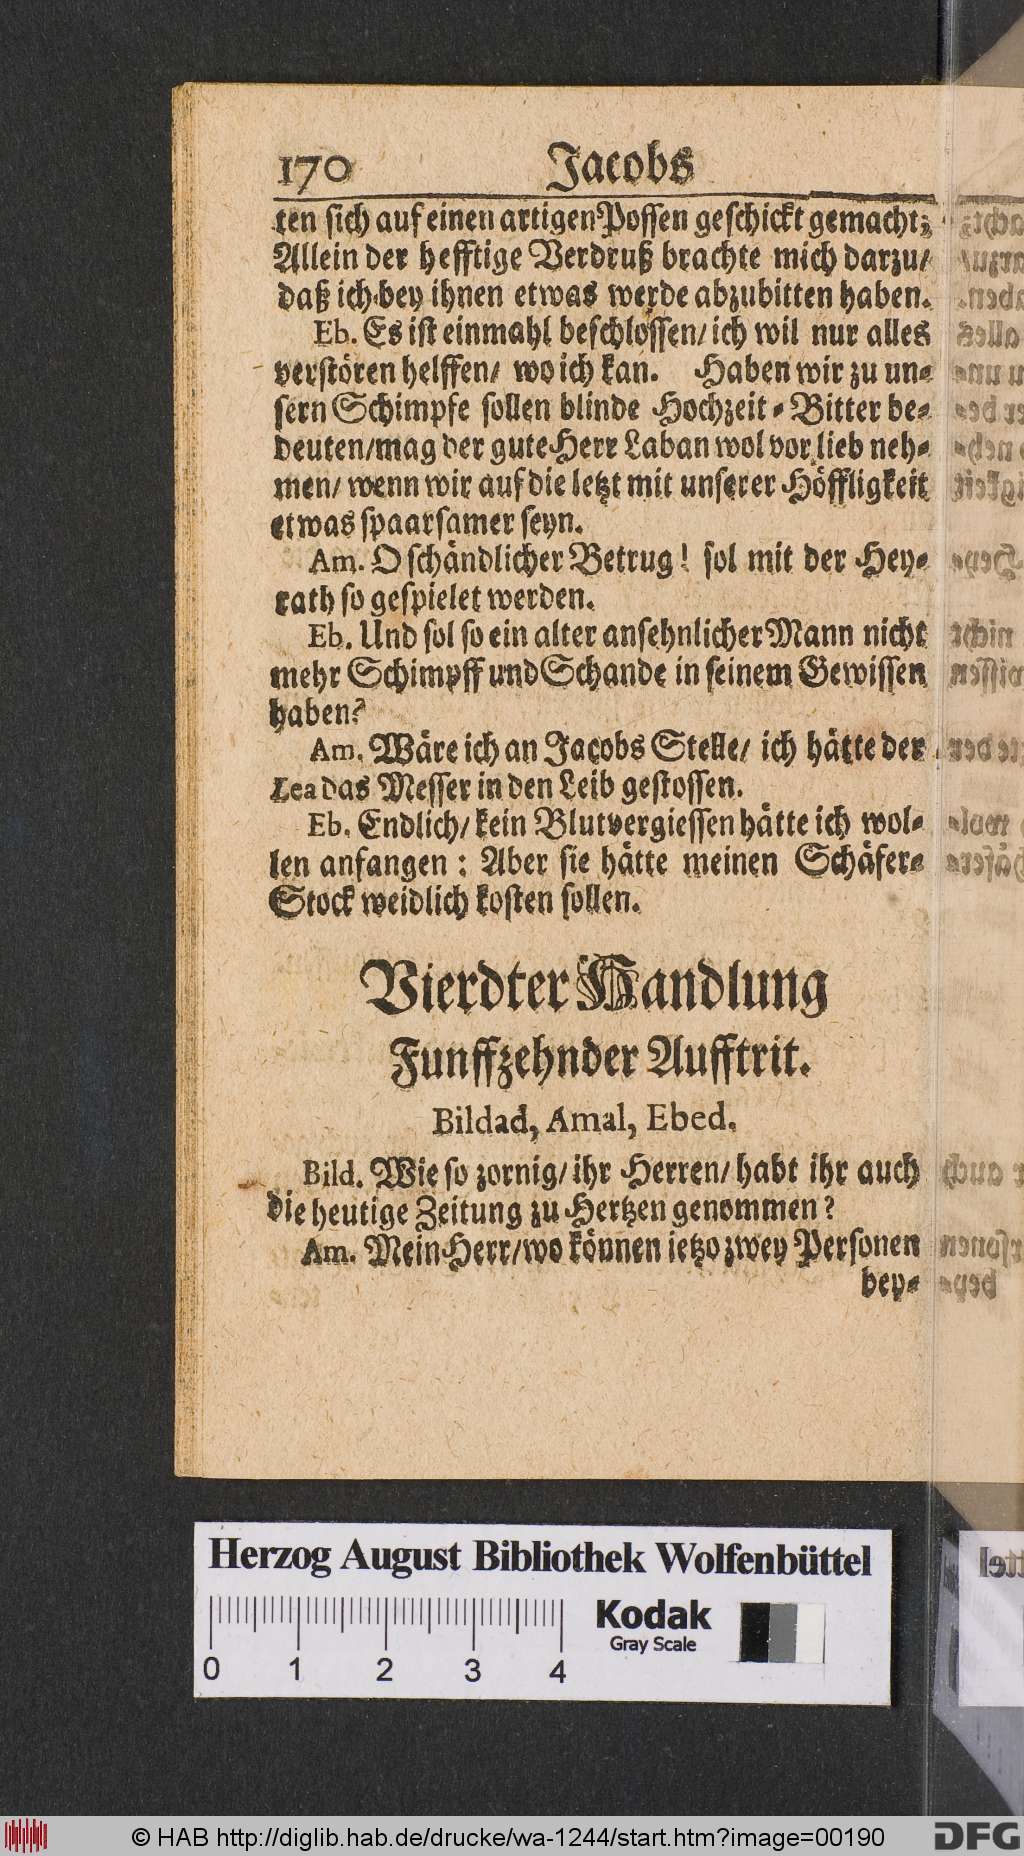 170 Jacobs
ten sich auf einen artigen Possen geschickt gemacht;
Allein der hefftige Verdruß brachte mich darzu/
daß ich bey ihnen etwas werde abzubitten haben.
Eb. Es ist einmahl beschlossen/ ich wil nur alles
verstören helffen/ wo ich kan. Haben wir zu un-
sern Schimpfe sollen blinde Hochzeit-Bitter be-
deuten/mag der gute Herr Laban wol vor lieb neh-
men/ wenn wir auf die letzt mit unserer Höffligkeit
etwas spaarsamer seyn.
Am. O schändlicher Betrug! sol mit der Hey-
rath so gespielet werden.
Eb. Und sol so ein alter ansehnlicher Mann nicht
mehr Schimpff und Schande in seinem Gewissen
haben?
Am. Wäre ich an Jacobs Stelle/ ich hätte der
Lea das Messer in den Leib gestossen.
Eb. Endlich/ kein Blutvergiessen hätte ich wol-
len anfangen: Aber sie hätte meinen Schäfer-
Stock weidlich kosten sollen.
Vierdter Handlung
Funffzehnder Aufftrit.
Bildad, Amal, Ebed.
Bild. Wie so zornig/ ihr Herren/ habt ihr auch
die heutige Zeitung zu Hertzen genommen?
Am. Mein Herr/wo können ietzo zwey Personen
bey-
Herzog August Bibliothek Wolfenbüttel
Kodak
Gray Scale
0 1 2 3 4
© HAB http://diglib.hab.de/drucke/wa-1244/start.htm?image=00190
DFG